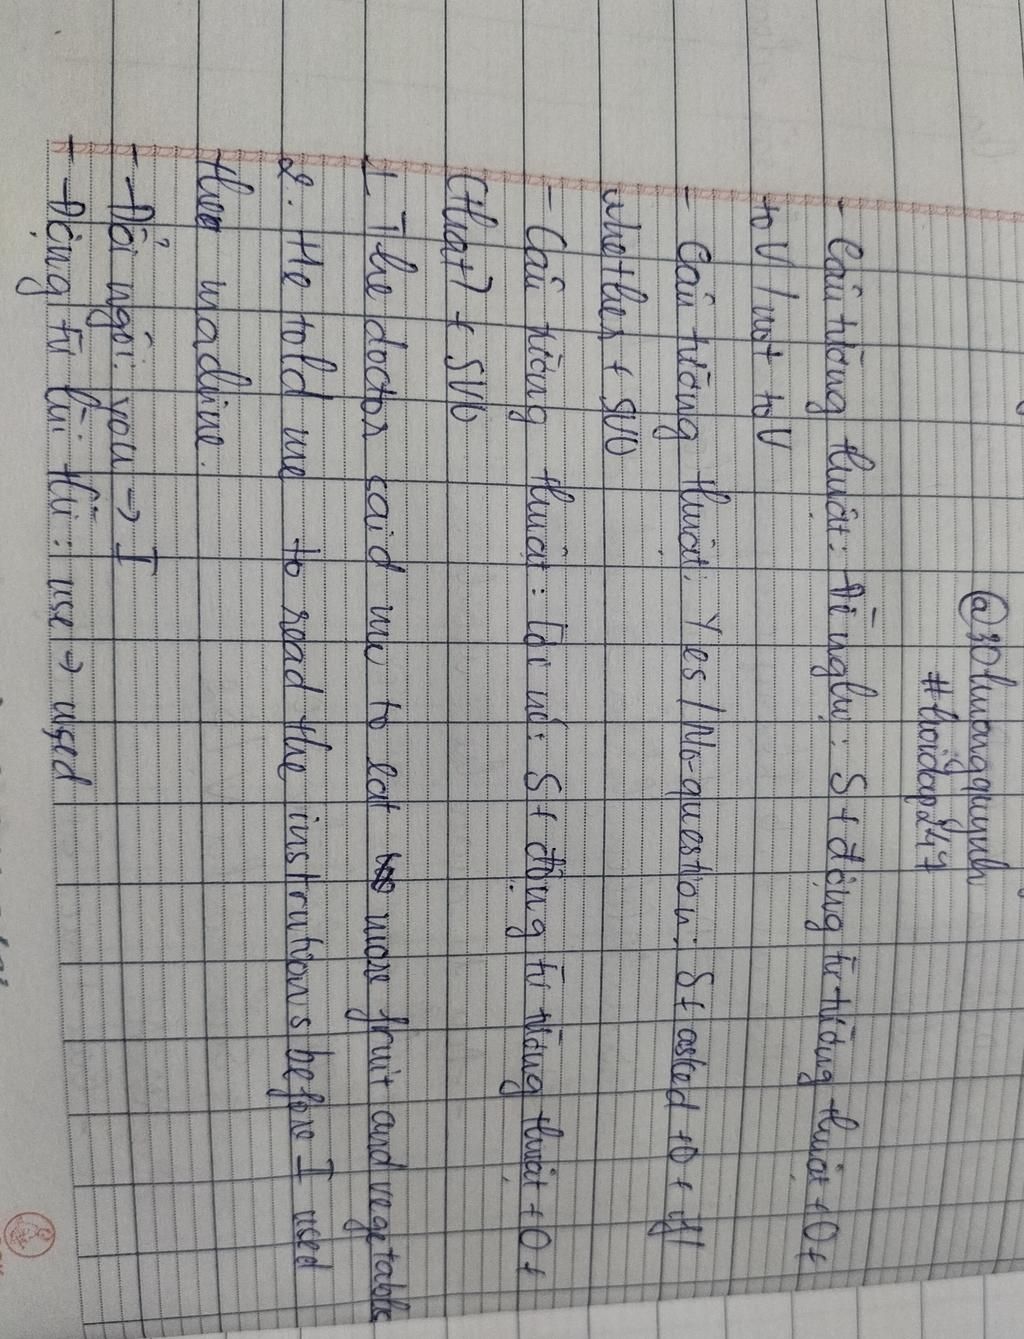 @30luongquynh
#hoidap247
- Câu tường thuật: Đề nghị: S + động từ tường thuật + O +
to V / not to V
- Câu tường thuật: Yes / No-question: S + asked + O + if/
whether + SVO
- Câu tường thuật: lời nói: S + động từ tường thuật + O +
(that) + SVO
1. The doctor said me to eat more fruit and vegetable
2. He told me to read the instrutions before I used
the madine.
- Đổi ngôi: you → I
- Động từ lùi thì: use → used